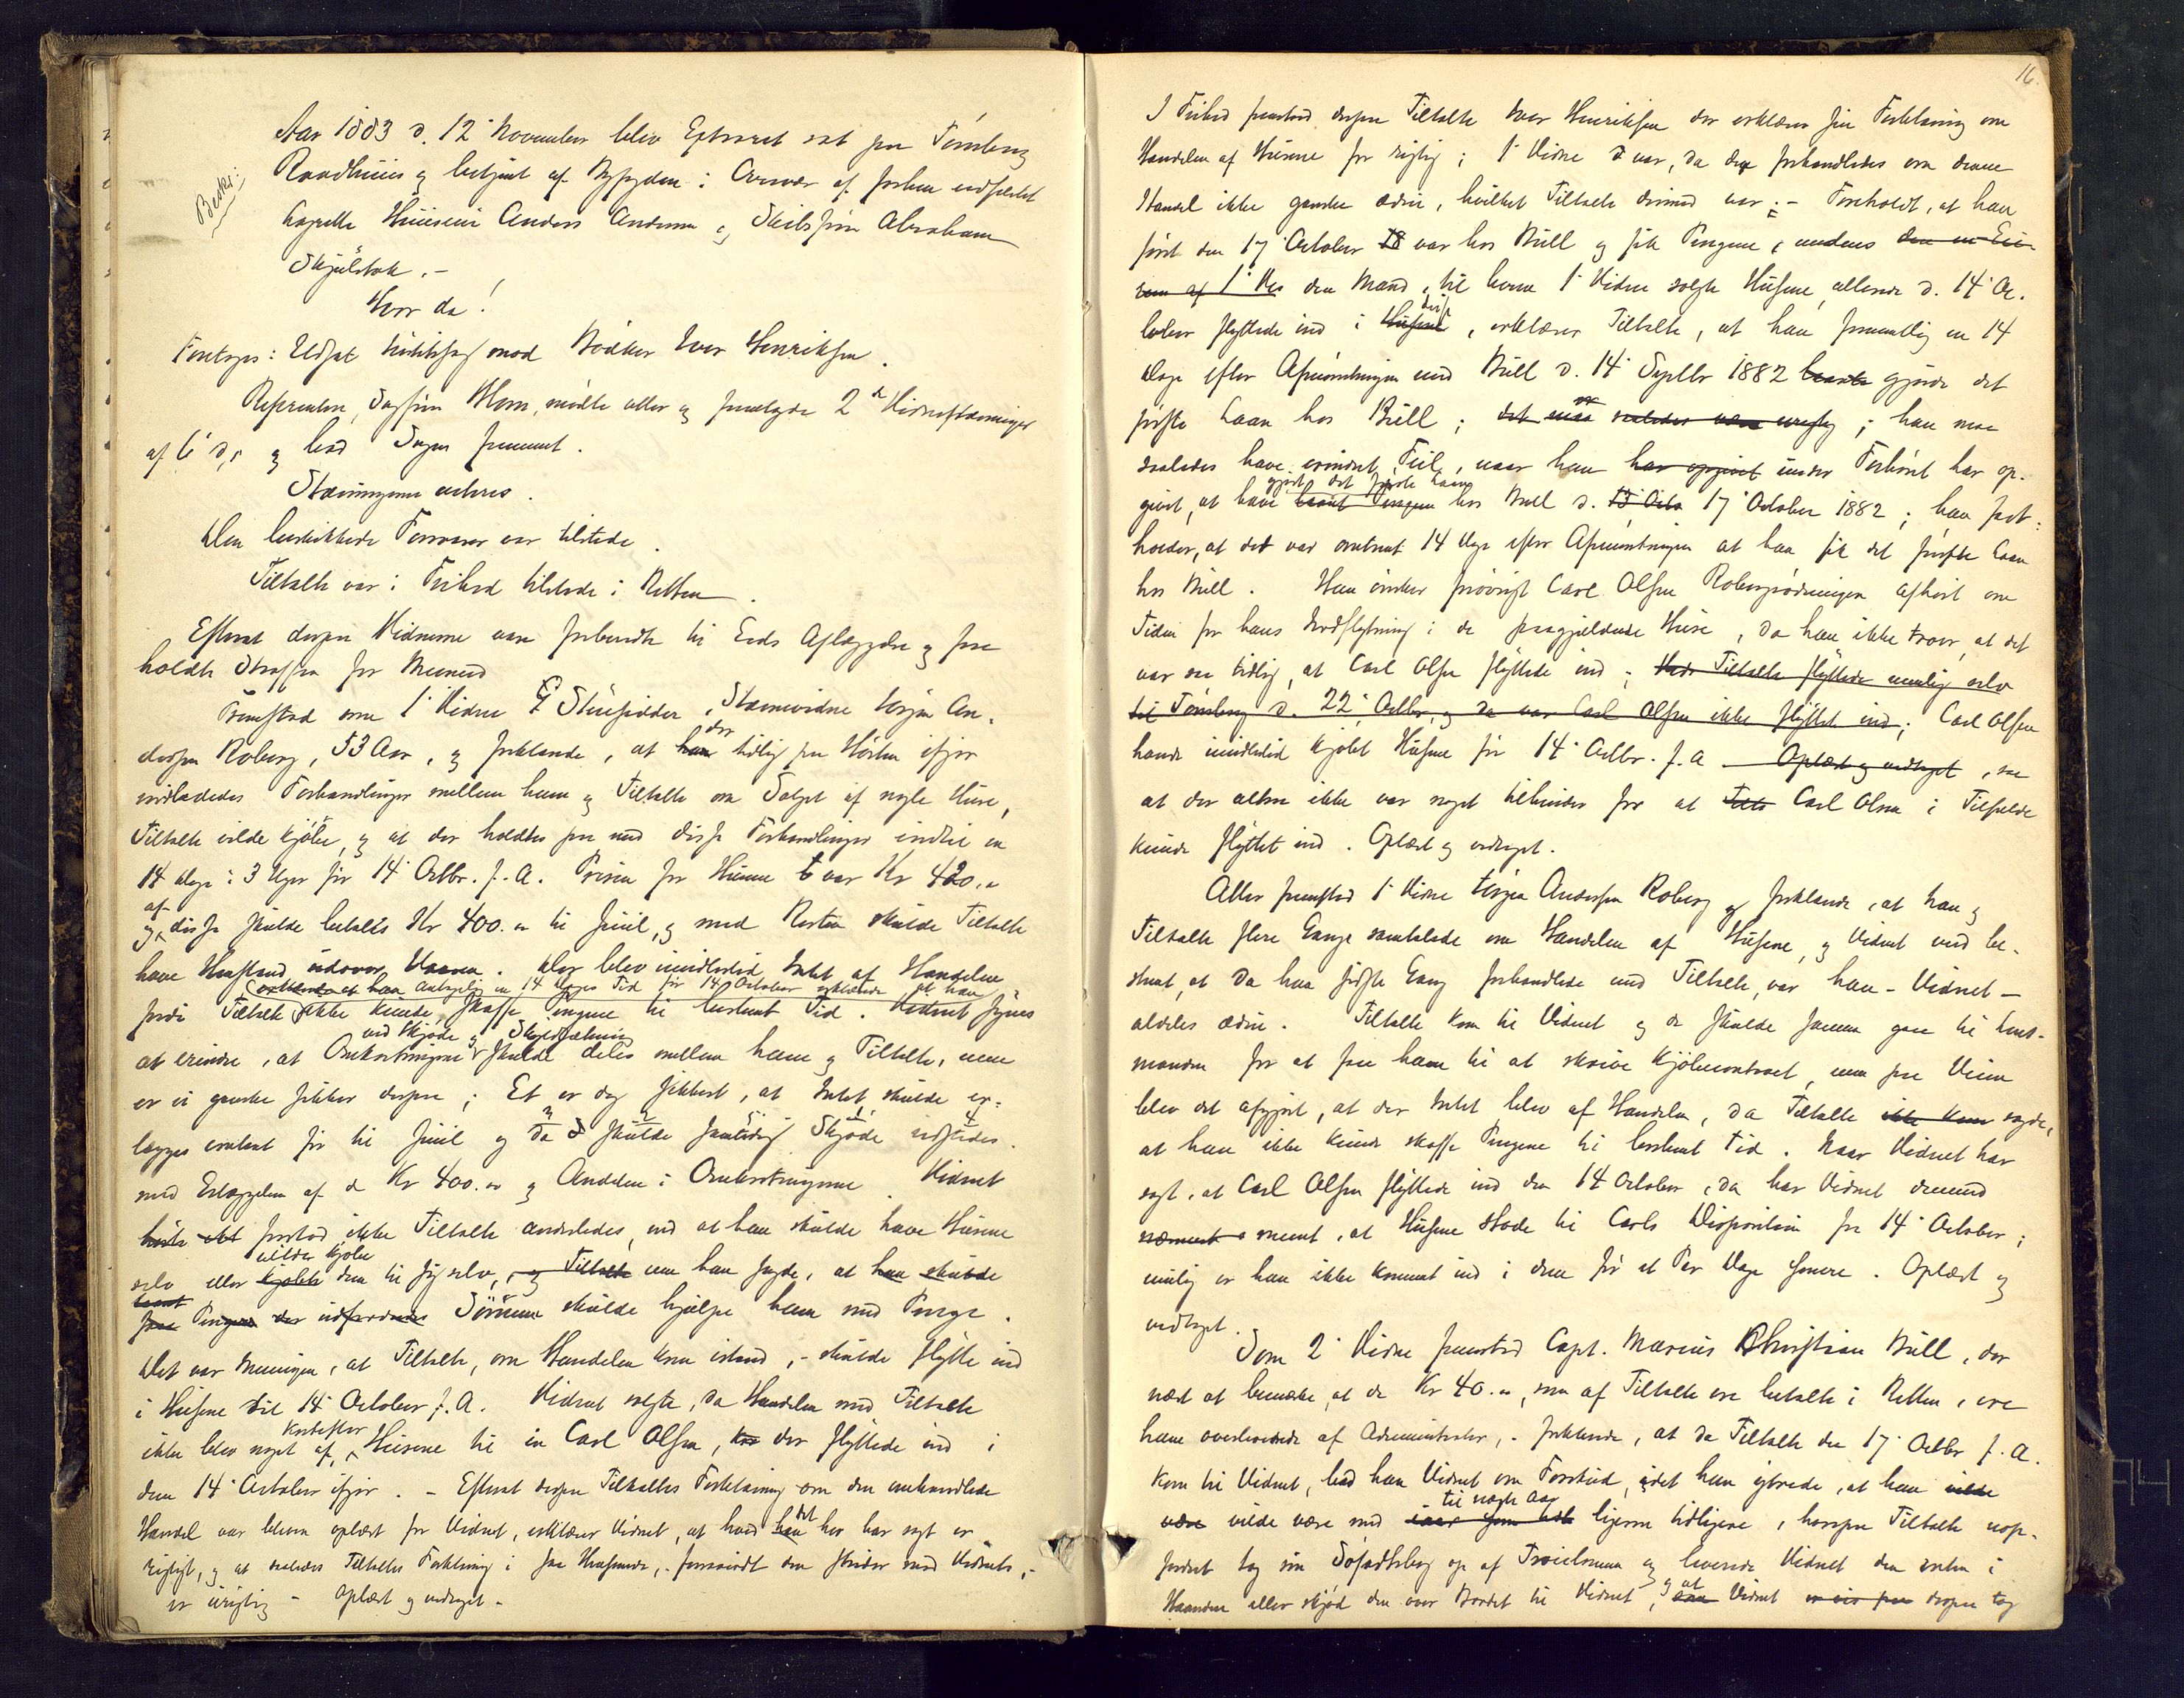 Beskr:
Aar 1883 d. 12' November blev Extraret sat paa Tønsberg
Raadhuus og betjent af Byfogden i Overvær af forhen edfæstet
Lagrette Huuseier Anders Andersen og Skibsfører Abraham
Skjælstok. -
Hvor da!
Foretoges: Udsat Justitssag mod Bødker Iver Henriksen.
Referenten, Sagfører Horn, mødte atter og fremlagde 2de Vidnestævninger
af 6' ds, og bad Sagen fremmet.
Stævningerne acteres.
Den beskikkede Forsvarer var tilstede.
Tiltalte var i Frihed tilstede i Retten.
Efterat derpaa Vidnerne vare forberedte til Eds Aflæggelse og fore
holdte Straffen for Meened
Fremstod som 1' Vidne Stuesidder, Stævnevidne Jørgen An-
dersen Roberg, 53 Aar, og forklarede, at han der tidlig paa Høsten ifjor
indlededes Forhandlinger mellem ham og Tiltalte om Salget af nogle Huse,
Tiltalte vilde kjøbe, og at der holdtes paa med disse Forhandlinger indtil en
14 Dage à 3 Uger før 14' Octbr. f. A. Prisen for Husene t var Kr 420. "
og af disse skulde betales Kr 400. " til Juul, og med Resten skulde Tiltalte
have Henstand udover Vaaren. Der blev imidlertid Intet af Handelen
erklærede at han antagelig en 14 Dages Tid før 14' October erklærede at han
fordi Tiltalte ikke kunde skaffe Pengene til bestemt Tid. Vidnet synes
ved Skjøde og Skyldsætning
at erindre, at Omkostningerne skulde deles mellem ham og Tiltalte, men
er ei ganske sikker derpaa; Et er dog sikkert, at Intet skulde er-
lægges contant før til Juul og da skulde samtidig Skjøde udstedes
med Erlæggelsen af de Kr 400. " og Andelen i Omkostningerne. Vidnet
forstod ikke Tiltalte anderledes, end at han skulde have Husene
vilde kjøbe
selv eller kjøbte dem til sig selv, og Tiltalte men han sagde, at han skulde
faae Pengene der Sønnerne skulde hjælpe ham med Penge.
Det var Meningen, at Tiltalte, om Handelen kom istand, - skulde flytte ind
i Husene til 14' October f. A. Vidnet solgte, da Handelen med Tiltalte
kortefter
ikke blev noget af, Husene til en Carl Olsen, der flyttede ind i
dem 14' October ifjor. - Efterat derpaa Tiltaltes Forklaring om den omhandlede
Handel var bleven oplæst for Vidnet, erklærer Vidnet, at hvad han det her har sagt er
rigtigt, og at saaledes Tiltaltes Forklaring i saa Henseende, - forsaavidt den strider mod Vidnets, -
er urigtig - Oplæst og vedtaget. -
16.
I Frihed fremstod derpaa Tiltalte Iver Henriksen der erklærer sin Forklaring om
Handelen af Husene for rigtig; 1' Vidne var, da der forhandledes om denne
Handel ikke ganske ædru, hvilket Tiltalte derimod var; - Foreholdt, at han
først den 17' October 18 var hos Bull og fik Pengene, medens den
den Mand, til hvem 1' Vidne solgte Husene allerede d. 14' Oc-
tober flyttede ind i Husene disse, erklærer Tiltalte, at han formentlig en 14
Dage efter Afmønstringen med Bull d. 14' Septbr 1882 gjorde det
første Laan hos Bull; det maa saaledes være urigtig; han maa
saaledes have erindret Feil, naar han har opgivet under Forhøret har op-
gjort det første Laan
givet, at have laant Pengene hos Bull d. 13' Octo 17' October 1882; han fast-
holder, at det var omtrent 14 Dage efter Afmønstringen at han fik det første Laan
hos Bull. Han ønsker forøvrigt Carl Olsen Robergrødningen afhørt om
Tiden for hans Indflytning i de paagjældende Huse, da han ikke troer, at det
var saa tidlig, at Carl Olsen flyttede ind; Tiltalte flyttede nemlig selv
til Tønsberg d. 22' Octbr, og da var Carl Olsen ikke flyttet ind; Carl Olsen
havde imidlertid kjøbt Husene før 14' Octbr. f. A. Oplæst og vedtaget, saa
at der altsaa ikke var noget tilhinder for at Tilt Carl Olsen i Tilfælde
kunde flyttet ind. Oplæst og vedtaget.
Atter fremstod 1' Vidne Jørgen Andersen Roberg og forklarede, at han og
Tiltalte flere Gange samtalede om Handelen af Husene, og Vidnet ved be-
stemt, at da han sidste Gang forhandlede med Tiltalte, var han - Vidnet -
aldeles ædru. Tiltalte kom til Vidnet og de skulde sammen gaae til Lens-
manden for at faae ham til at skrive Kjøbecontract, men paa Veien
blev det afgjort, at der Intet blev af Handelen, da Tiltalte ikke kun sagde,
at han ikke kunde skaffe Pengene til bestemt Tid. Naar Vidnet har
sagt, at Carl Olsen flyttede ind den 14 October, da har Vidnet dermed
nærmest meent, at Husene stode til Carls Disposition fra 14' October;
nemlig er han ikke kommet ind i dem før et Par Dage senere. Oplæst og
vedtaget.
Som 2' Vidne fremstod Capt. Marius Christian Bull, der
ved at bemærke, at de Kr 40. ", som af Tiltalte ere betalte i Retten, ere
ham overleverede af Administrator, - forklarede, at da Tiltalte den 17' Octbr f. A.
kom til Vidnet, bad han Vidnet om Forskud, idet han ytrede, at han vilde
til næste Aar
være vilde være med ligesom tidligere, hvorpaa Tiltalte uop-
fordret tog sin Søfartsbog op af Trøielommen og leverede Vidnet den enten i
Haanden eller skjød den over Bordet til Vidnet, og at Vidnet derpaa tog